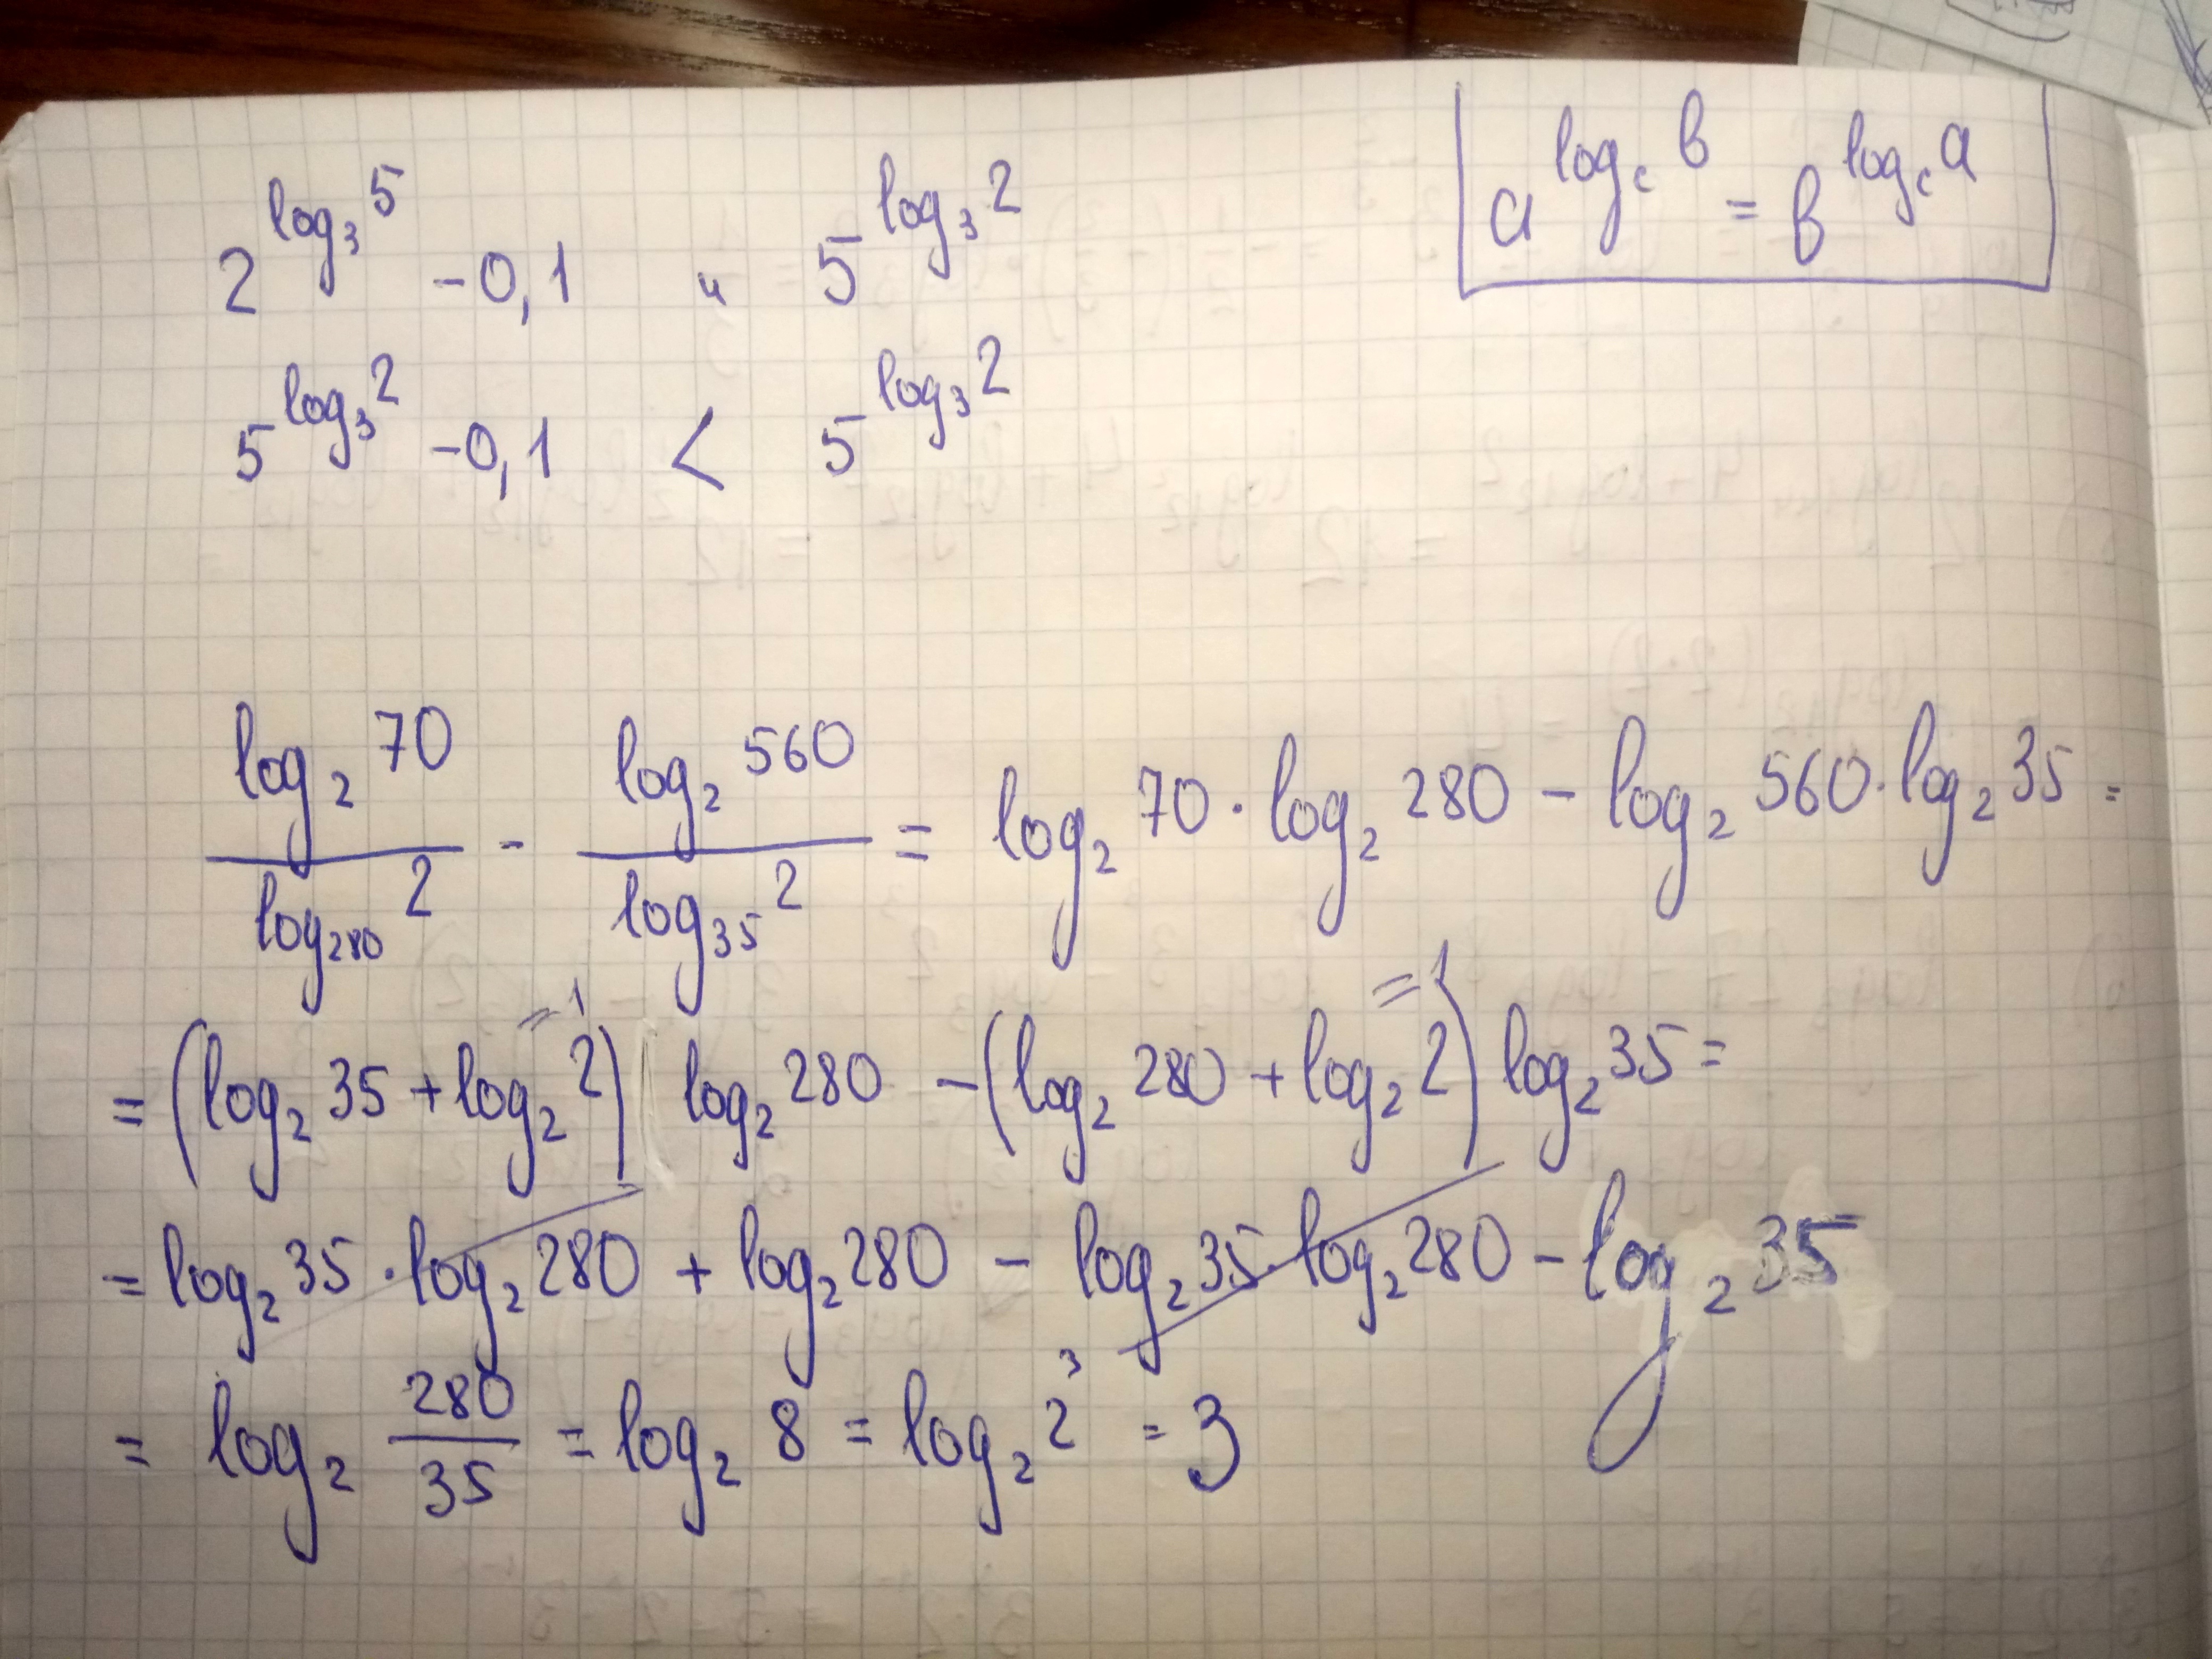 2^{log_3 5} - 0,1 и 5^{log_3 2}
a^{log_c b} = b^{log_c a}
5^{log_3 2} - 0,1 < 5^{log_3 2}
\frac{log_2 70}{log_{280} 2} - \frac{log_2 560}{log_{35} 2} = log_2 70 · log_2 280 - log_2 560 · log_2 35 =
=1 =1
= (log_2 35 + log_2 2) log_2 280 - (log_2 280 + log_2 2) log_2 35 =
= log_2 35 · log_2 280 + log_2 280 - log_2 35 · log_2 280 - log_2 35
= log_2 \frac{280}{35} = log_2 8 = log_2 2^3 = 3